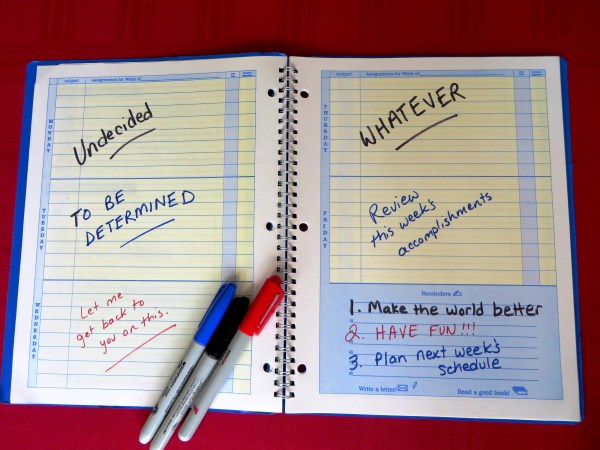 Subject Assignments for Week of
MONDAY
Undecided
TUESDAY
TO BE
DETERMINED
WEDNESDAY
Let me
get back to
you on this.
Subject Assignments for Week of
THURSDAY
WHATEVER
FRIDAY
Review
this week's
accomplishments
Reminders
1. Make the world better
2. HAVE FUN!!!
3. Plan next week's
schedule
Write a letter! Read a good book!